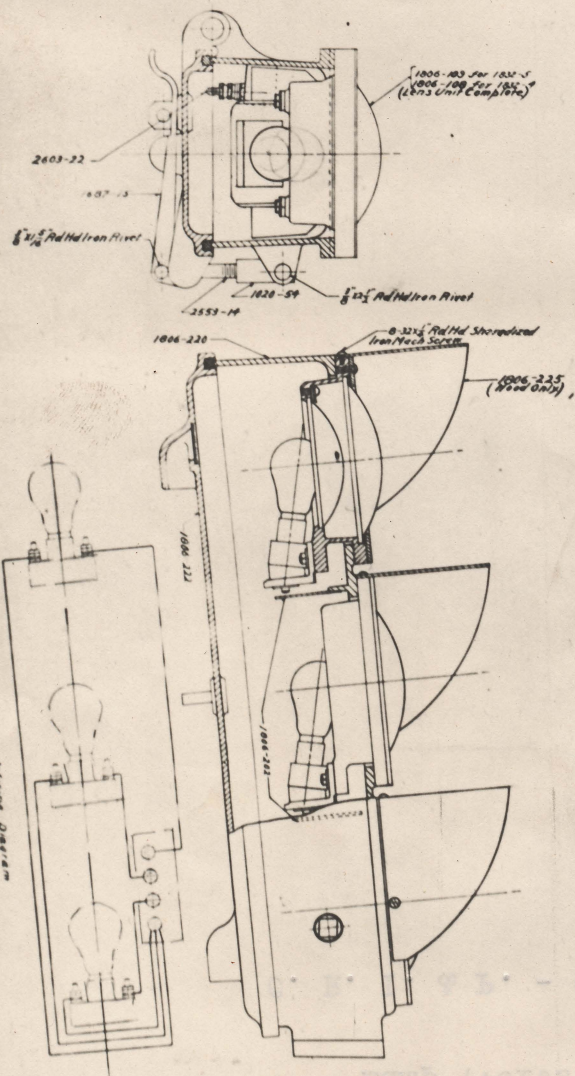 1806-109 for 1832-5
1806-108 for 1832-4
(Lens Unit Complete)
2603-22
Rd Hd Iron Rivet
2553-14
1820-54
Rd Hd Iron Rivet
1806-220
8-32x½" Rd Hd Sherodized
Iron Mach Screw
1806-225
(Hood Only)
1806-222
1806-202
Diagram